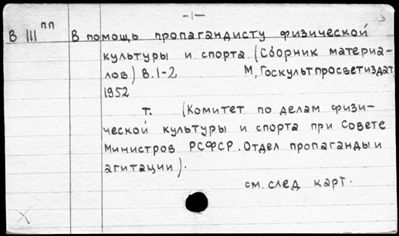 -1-
В III пп В помощь пропагандисту физической
культуры и спорта. (Сборник материа-
лов) в.1-2 М, Госкультпросветиздат
1952
т. (Комитет по делам физи-
ческой культуры и спорта при Совете
Министров РСФСР. Отдел пропаганды и
агитации).
см. след карт.